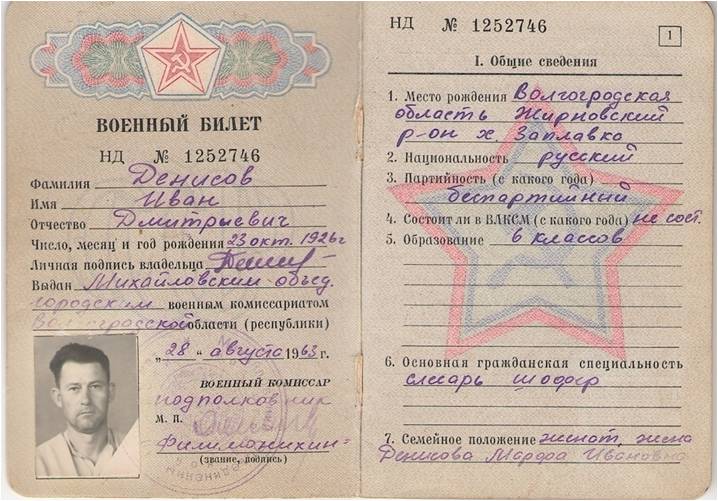 ВОЕННЫЙ БИЛЕТ
НД № 1252746
Фамилия Денисов
Имя Иван
Отчество Дмитриевич
Число, месяц и год рождения 23 окт. 1926г
Личная подпись владельца
Выдан Михайловским объед.
городским военным комиссариатом
Волгоградской области (республики)
„28" августа 1963 г.
ВОЕННЫЙ КОМИССАР
подполковник
М. П.
Филимонихин
(звание, подпись)
НД № 1252746
1
I. Общие сведения
1. Место рождения Волгоградская
область Жирновский
р-он х. Заплавка
2. Национальность русский
3. Партийность (с какого года)
беспартийный
4. Состоит ли в ВЛКСМ (с какого года) не сост.
5. Образование 6 классов
6. Основная гражданская специальность
слесарь шофер
7. Семейное положение женат, жена
Денисова Марфа Ивановна